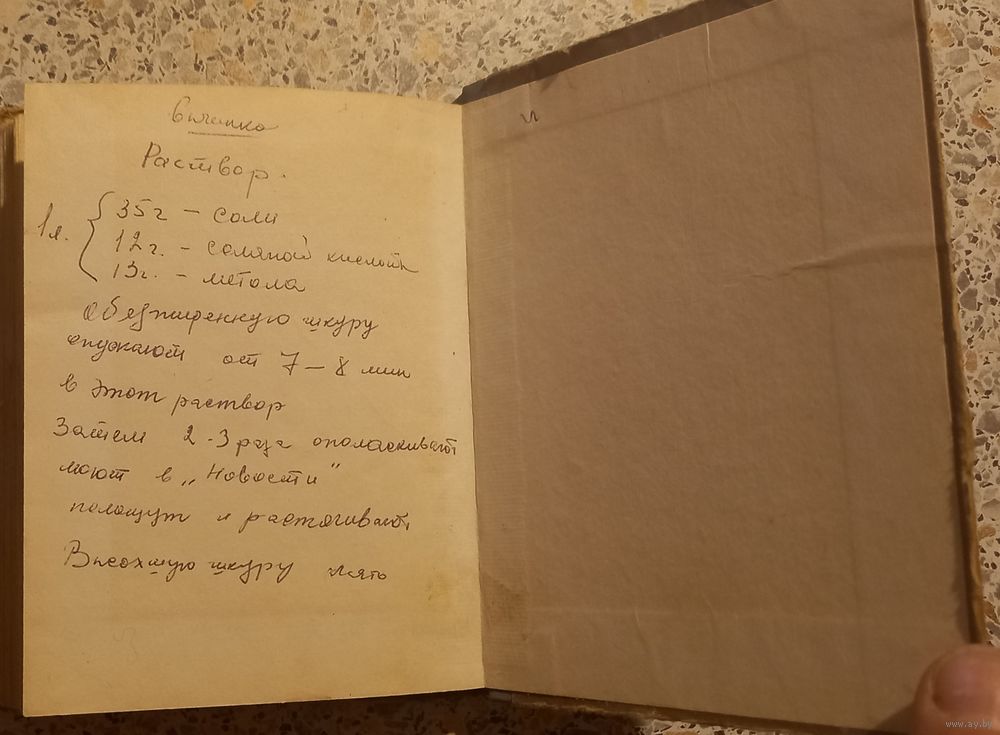 Раствор.
1л.
35г – соли
12г. – соляной кислоты
13г. – метола
Обезжиренную шкуру
опускают от 7–8 мин
в этот раствор
Затем 2-3 раза ополаскивают
моют в „Новости"
полощут и растягивают,
Высохшую шкуру мять
www.ay.by